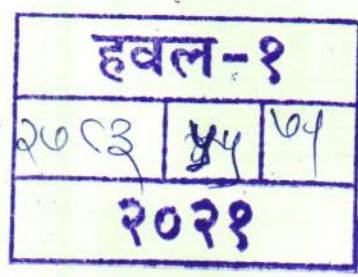 हवल-१
२७८३ ५५ ७५
२०२१